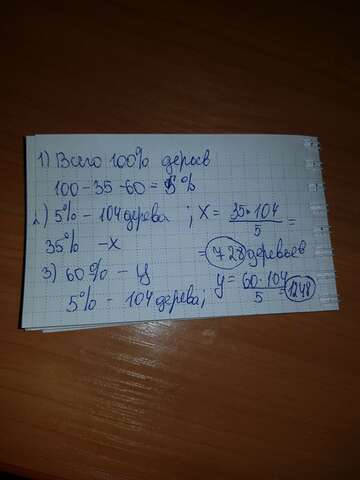 1) Всего 100% деревьев
100 - 35 - 60 = 5%
2) 5% - 104 дерева ; X = 35·104 / 5 =
35% - X = 728 деревьев
3) 60% - y y = 60·104 / 5 = 1248
5% - 104 дерева;